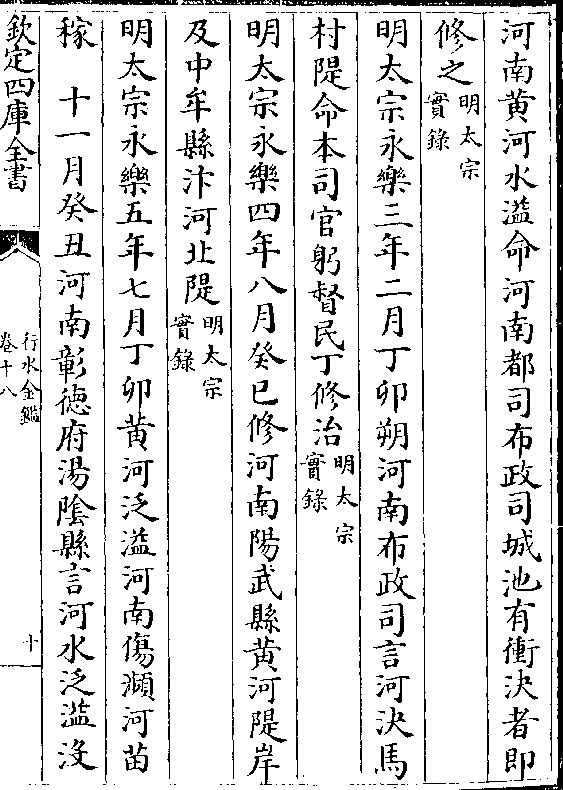 河南黄河水溢命河南都司布政司城池有衝決者即
修之明太宗實錄
明太宗永樂三年二月丁卯朔河南布政司言河決馬
村隄命本司官躬督民丁修治明太宗實錄
明太宗永樂四年八月癸巳修河南陽武縣黄河隄岸
及中牟縣汴河北隄明太宗實錄
明太宗永樂五年七月丁卯黄河泛溢河南傷瀕河苗
稼　十一月癸丑河南彰德府湯陰縣言河水泛溢沒
欽定四庫全書
行水金鑑
卷十八
十